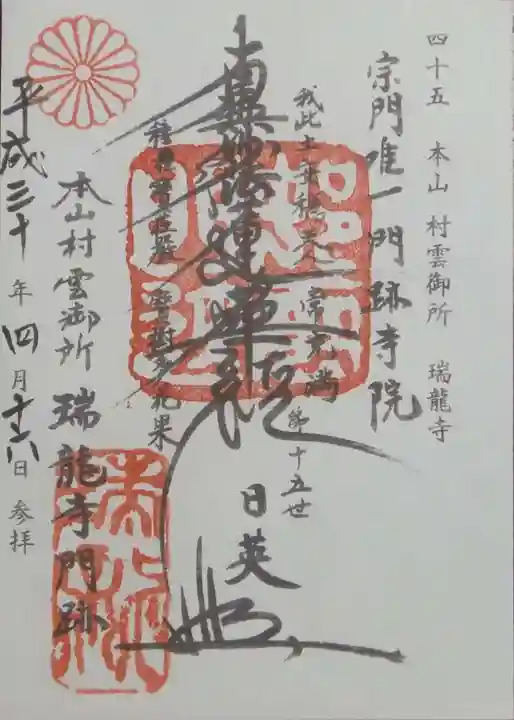 四十五 本山 村雲御所 瑞龍寺
宗門唯一門跡寺院
我此土安穏 天人常充満
第十五世
日英
南無妙法蓮華経
種種宝荘厳 宝樹多花果
本山村雲御所 瑞龍寺門跡
平成三十年四月十六日参拝